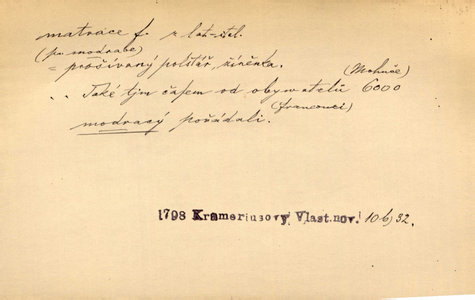 matrace f. z lat.-ital.
(po modrabe)
= prošívaný polštář, žíněnka.
(Mohuče)
. . Také tým časem od obywatelů 6000
(francouci)
modracý požádali.
1798 Krameriusovy Vlast.nov. 10b, 32.